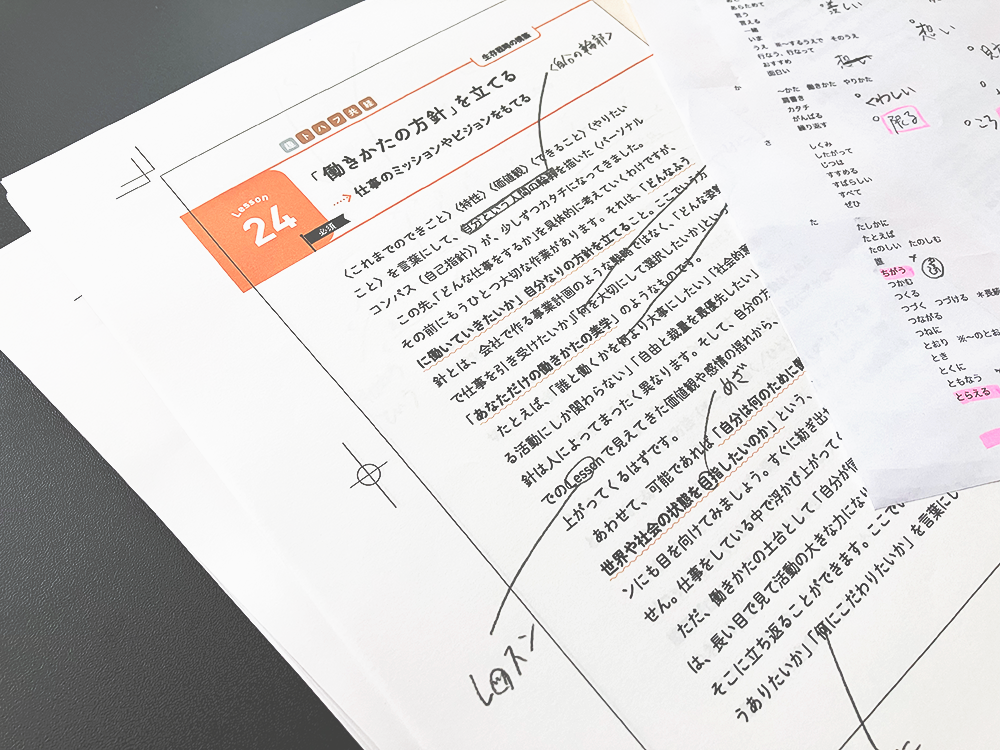 生存戦略の構築
〈自分の輪郭〉
Lesson
24
必須
「働きかたの方針」を立てる
仕事のミッションやビジョンをもてる
〈これまでのできごと〉〈特性〉〈価値観〉〈できること〉〈やりたい
こと〉を言葉にして、自分という人間の輪郭を描いた〈パーソナル
コンパス（自己指針）〉が、少しずつカタチになってきました。
この先、「どんな仕事をするか」を具体的に考えていくわけですが、
その前にもうひとつ大切な作業があります。それは、「どんなよう
に働いていきたいか」自分なりの方針を立てること。ここでいう方
針とは、会社で作る事業計画のような戦略ではなく、「どんな姿勢
で仕事を引き受けたいか」「何を大切にして選択したいか」とい
「あなただけの働きかたの美学」のようなものです。
たとえば、「誰と働くかを何より大事にしたい」「社会的意
る活動にしか関わらない」「自由と裁量を最優先したい」
針は人によってまったく異なります。そして、自分の方
でのLessonで見えてきた価値観や感情の揺れから、
上がってくるはずです。
めざ
あわせて、可能であれば「自分は何のために働
世界や社会の状態を目指したいのか」という、
ンにも目を向けてみましょう。すぐに紡ぎ出せ
せん。仕事をしている中で浮かび上がって
ただ、働きかたの土台として「自分が何
は、長い目で見て活動の大きな力になり
そこに立ち返ることができます。ここでい
うありたいか」「何にこだわりたいか」を言葉にし
レッスン
あらためて
言う
買える
一緒
いま
うえ ※〜するうえで そのうえ
行なう、行なって
おすすめ
面白い
想い
か
〜かた 働きかた やりかた
肩書き
カタチ
がんばる
繰り返す
くわしい
さ
しくみ
したがって
じつは
すすめる
すばらしい
すべて
ぜひ
た
たしかに
たとえば
たのしい たのしむ
誰
ちがう
つかむ
つくる
つづく つづける
つながる
つねに
とおり ※〜のとお
とき
とくに
ともなう
とらえる